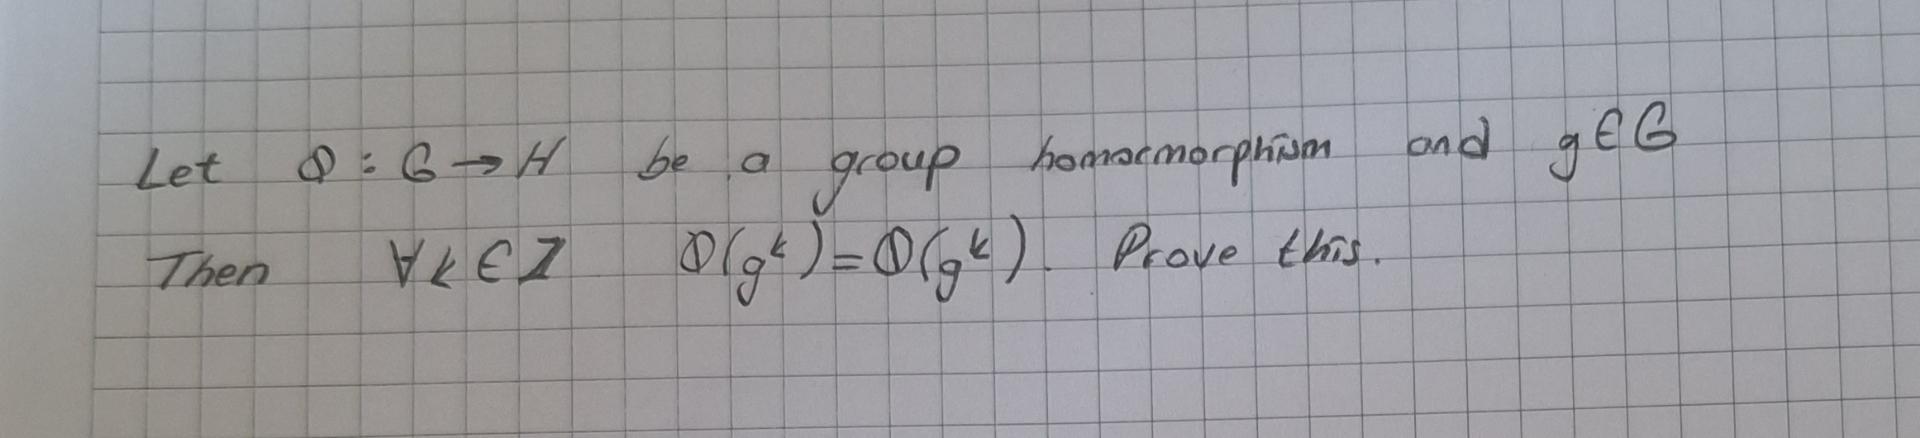 Let Φ : G → H be a group homomorphism and g ∈ G
Then ∀ k ∈ Z Φ(g^k) = Φ(g^k). Prove this.